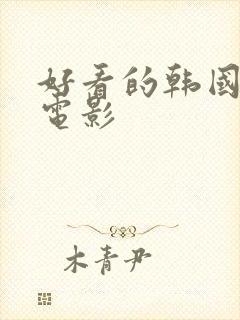 好看的韩國
電影
木青尹